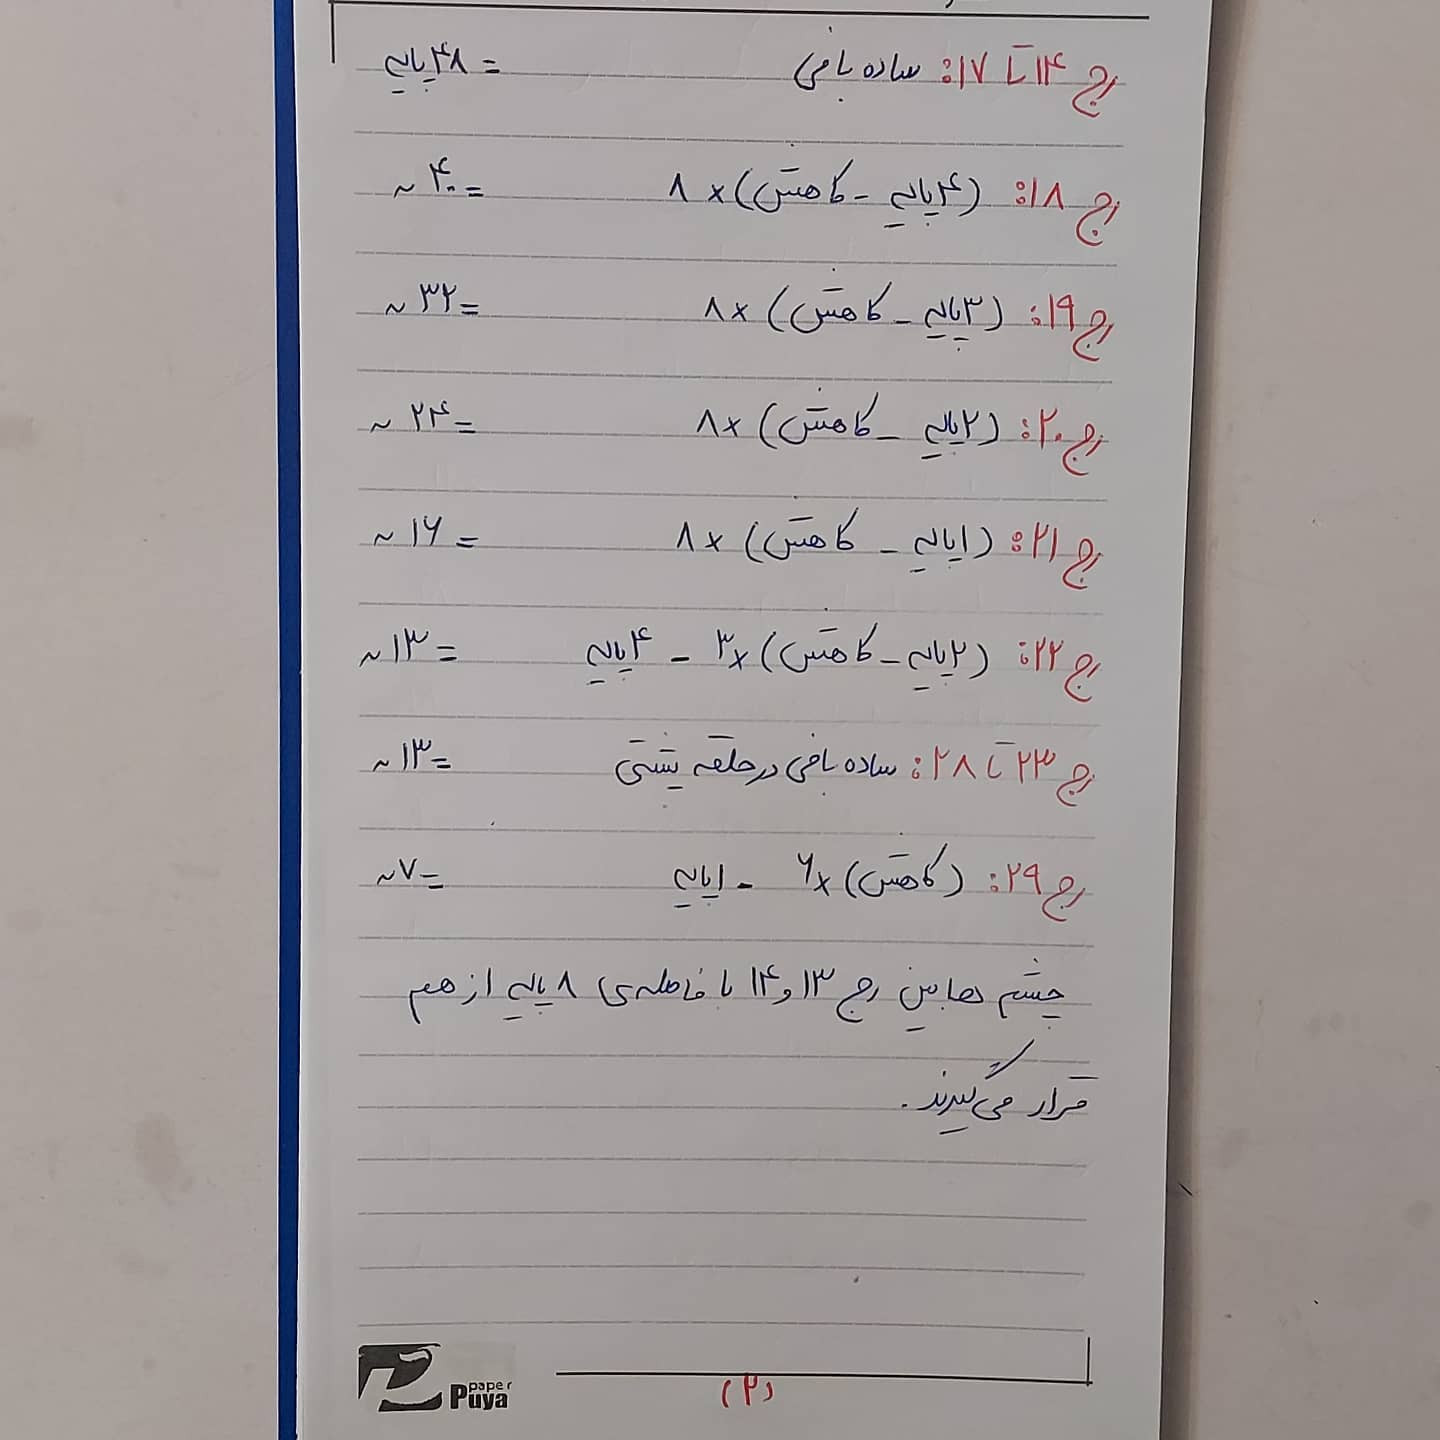 رج ۱۴ تا ۱۷: ساده بافی = ۴۸ پایه
رج ۱۸: (۴ پایه - کاهش) × ۸ = ۴۰ ~
رج ۱۹: (۳ پایه - کاهش) × ۸ = ۳۲ ~
رج ۲۰: (۲ پایه - کاهش) × ۸ = ۲۴ ~
رج ۲۱: (۱ پایه - کاهش) × ۸ = ۱۶ ~
رج ۲۲: (۲ پایه - کاهش) × ۳ - ۴ پایه = ۱۳ ~
رج ۲۳ تا ۲۸: ساده بافی در حلقه پشتی = ۱۳ ~
رج ۲۹: (کاهش) × ۶ - ۱ پایه = ۷ ~
چشم ها بین رج ۱۳ و ۱۴ با فاصله‌ی ۸ پایه از هم
قرار می‌گیرند.
paper
Puya
(۲)